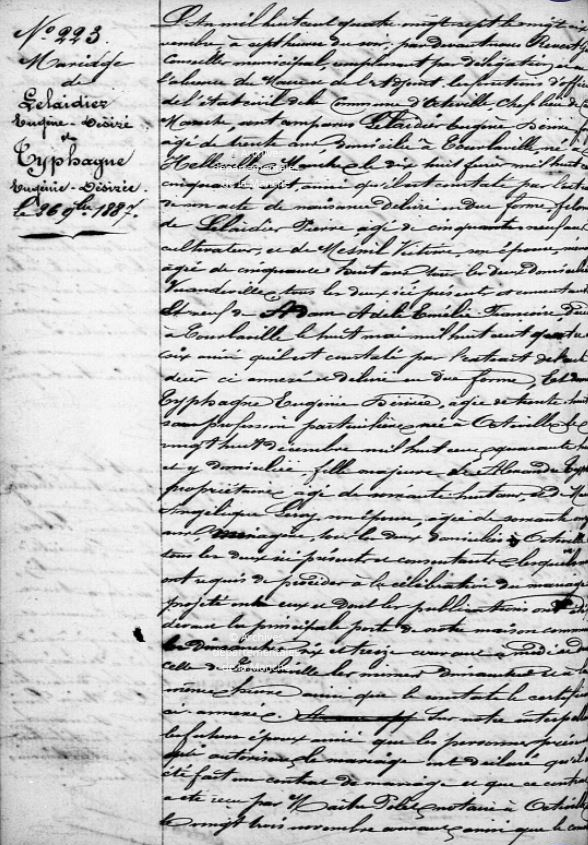 No 223
Mariage
de
Lelaidier
Eugène-Désiré
&
Typhagne
Eugénie-Désirée.
le 26 9bre 1887.
L'An mil huit cent quatre vingt sept le vingt six
vembre, à sept heures du soir, par devant nous
Conseiller municipal, remplissant par délégation, en
l'absence du Maire et de l'Adjoint, les fonctions d'offi
de l'état civil de la Commune d'Octeville Chef lieu de
Manche, ont comparu Lelaidier Eugène Désiré,
âgé de trente ans domicilié à Tourlaville, né à
Manche, le dix huit mil huit c
cinquante sept, ainsi qu'il est constaté par l'extr
de son acte de naissance délivré en due forme, fils
de Lelaidier Pierre âgé de cinquante neuf an
cultivateur, et de Mesnil Victoire, son épouse, mén
âgée de cinquante huit ans, tous les deux domiciliés
tous les deux ici présents et consentants
Et veuf de Adam Adèle Emélie Françoise, déc
à Tourlaville le huit mai mil huit cent quatre
six ainsi qu'il est constaté par l'extrait de l'acte
décès ci annexé et délivré en due forme, Et dem
Typhagne Eugénie Désirée, âgée de trente huit
sans profession particulière née à Octeville le
vingt huit décembre mil huit cent quarante h
et y domiciliée, fille majeure de Alexandre Typ
propriétaire âgé de soixante huit ans, et de M
Angélique Leroy son épouse, âgée de soixante
ans ménagère, tous les deux domiciliés à Octeville
tous les deux ici présents et consentants, lesquels
ont requis de procéder à la célébration du mariage
projeté entre eux et dont les publications ont été
devant la principale porte de notre maison commune
les dimanches six et treize courant à midi et
celle de Tourlaville les mêmes dimanches et à la
même heure ainsi que le constate le certificat
ci annexé Sur notre interpell
les futurs époux ainsi que les personnes présen
qui autorisent le mariage ont déclaré qu'il a
été fait un contrat de mariage et que ce contrat
a été reçu par Maître notaire à Octeville
le vingt trois novembre courant, ainsi que le cons
© Archives
départementales
de la Manche
© Archives
départementales
de la Manche